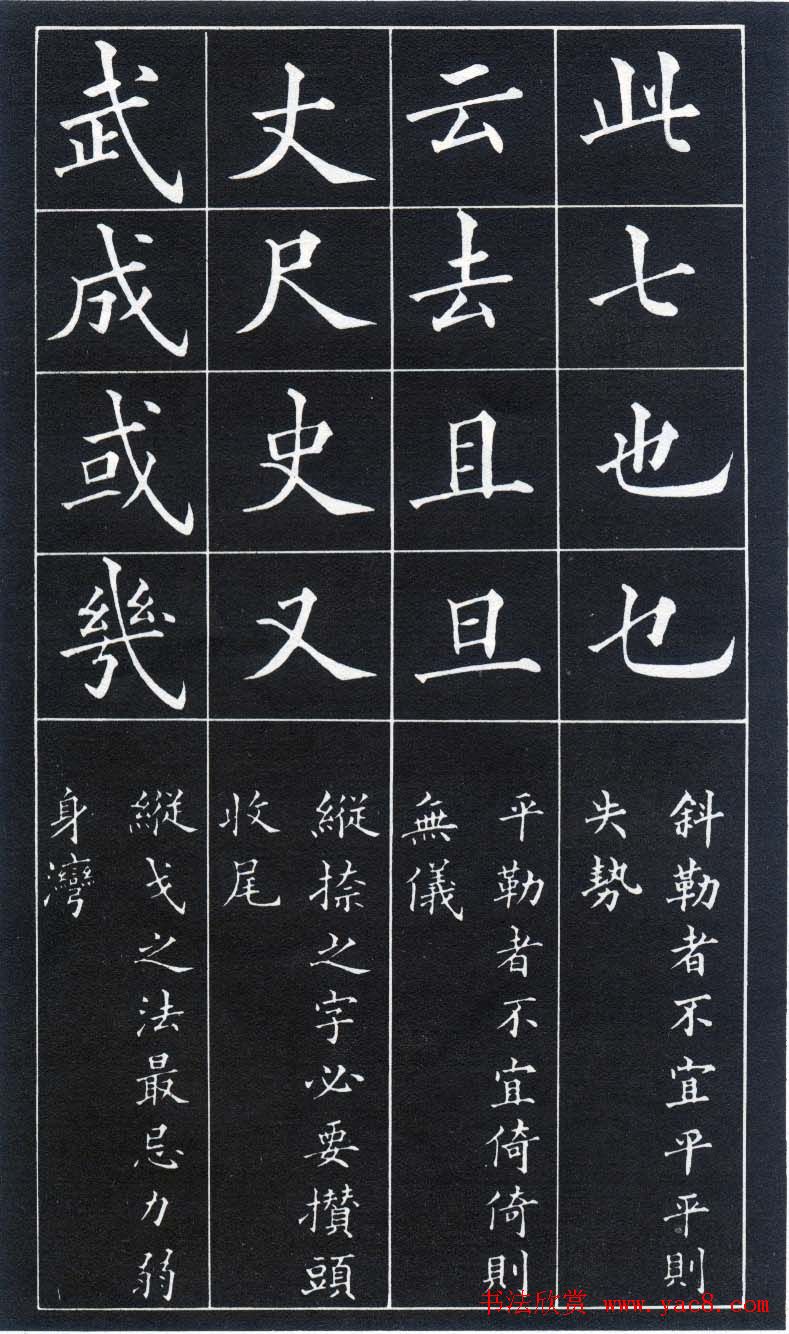 此七也乜
斜勒者不宜平平則
失勢
云去且旦
平勒者不宜倚倚則
無儀
丈尺史又
縱捺之字必要攢頭
收尾
武成或幾
縱戈之法最忌力弱
身灣
书法欣赏 www.yac8.com